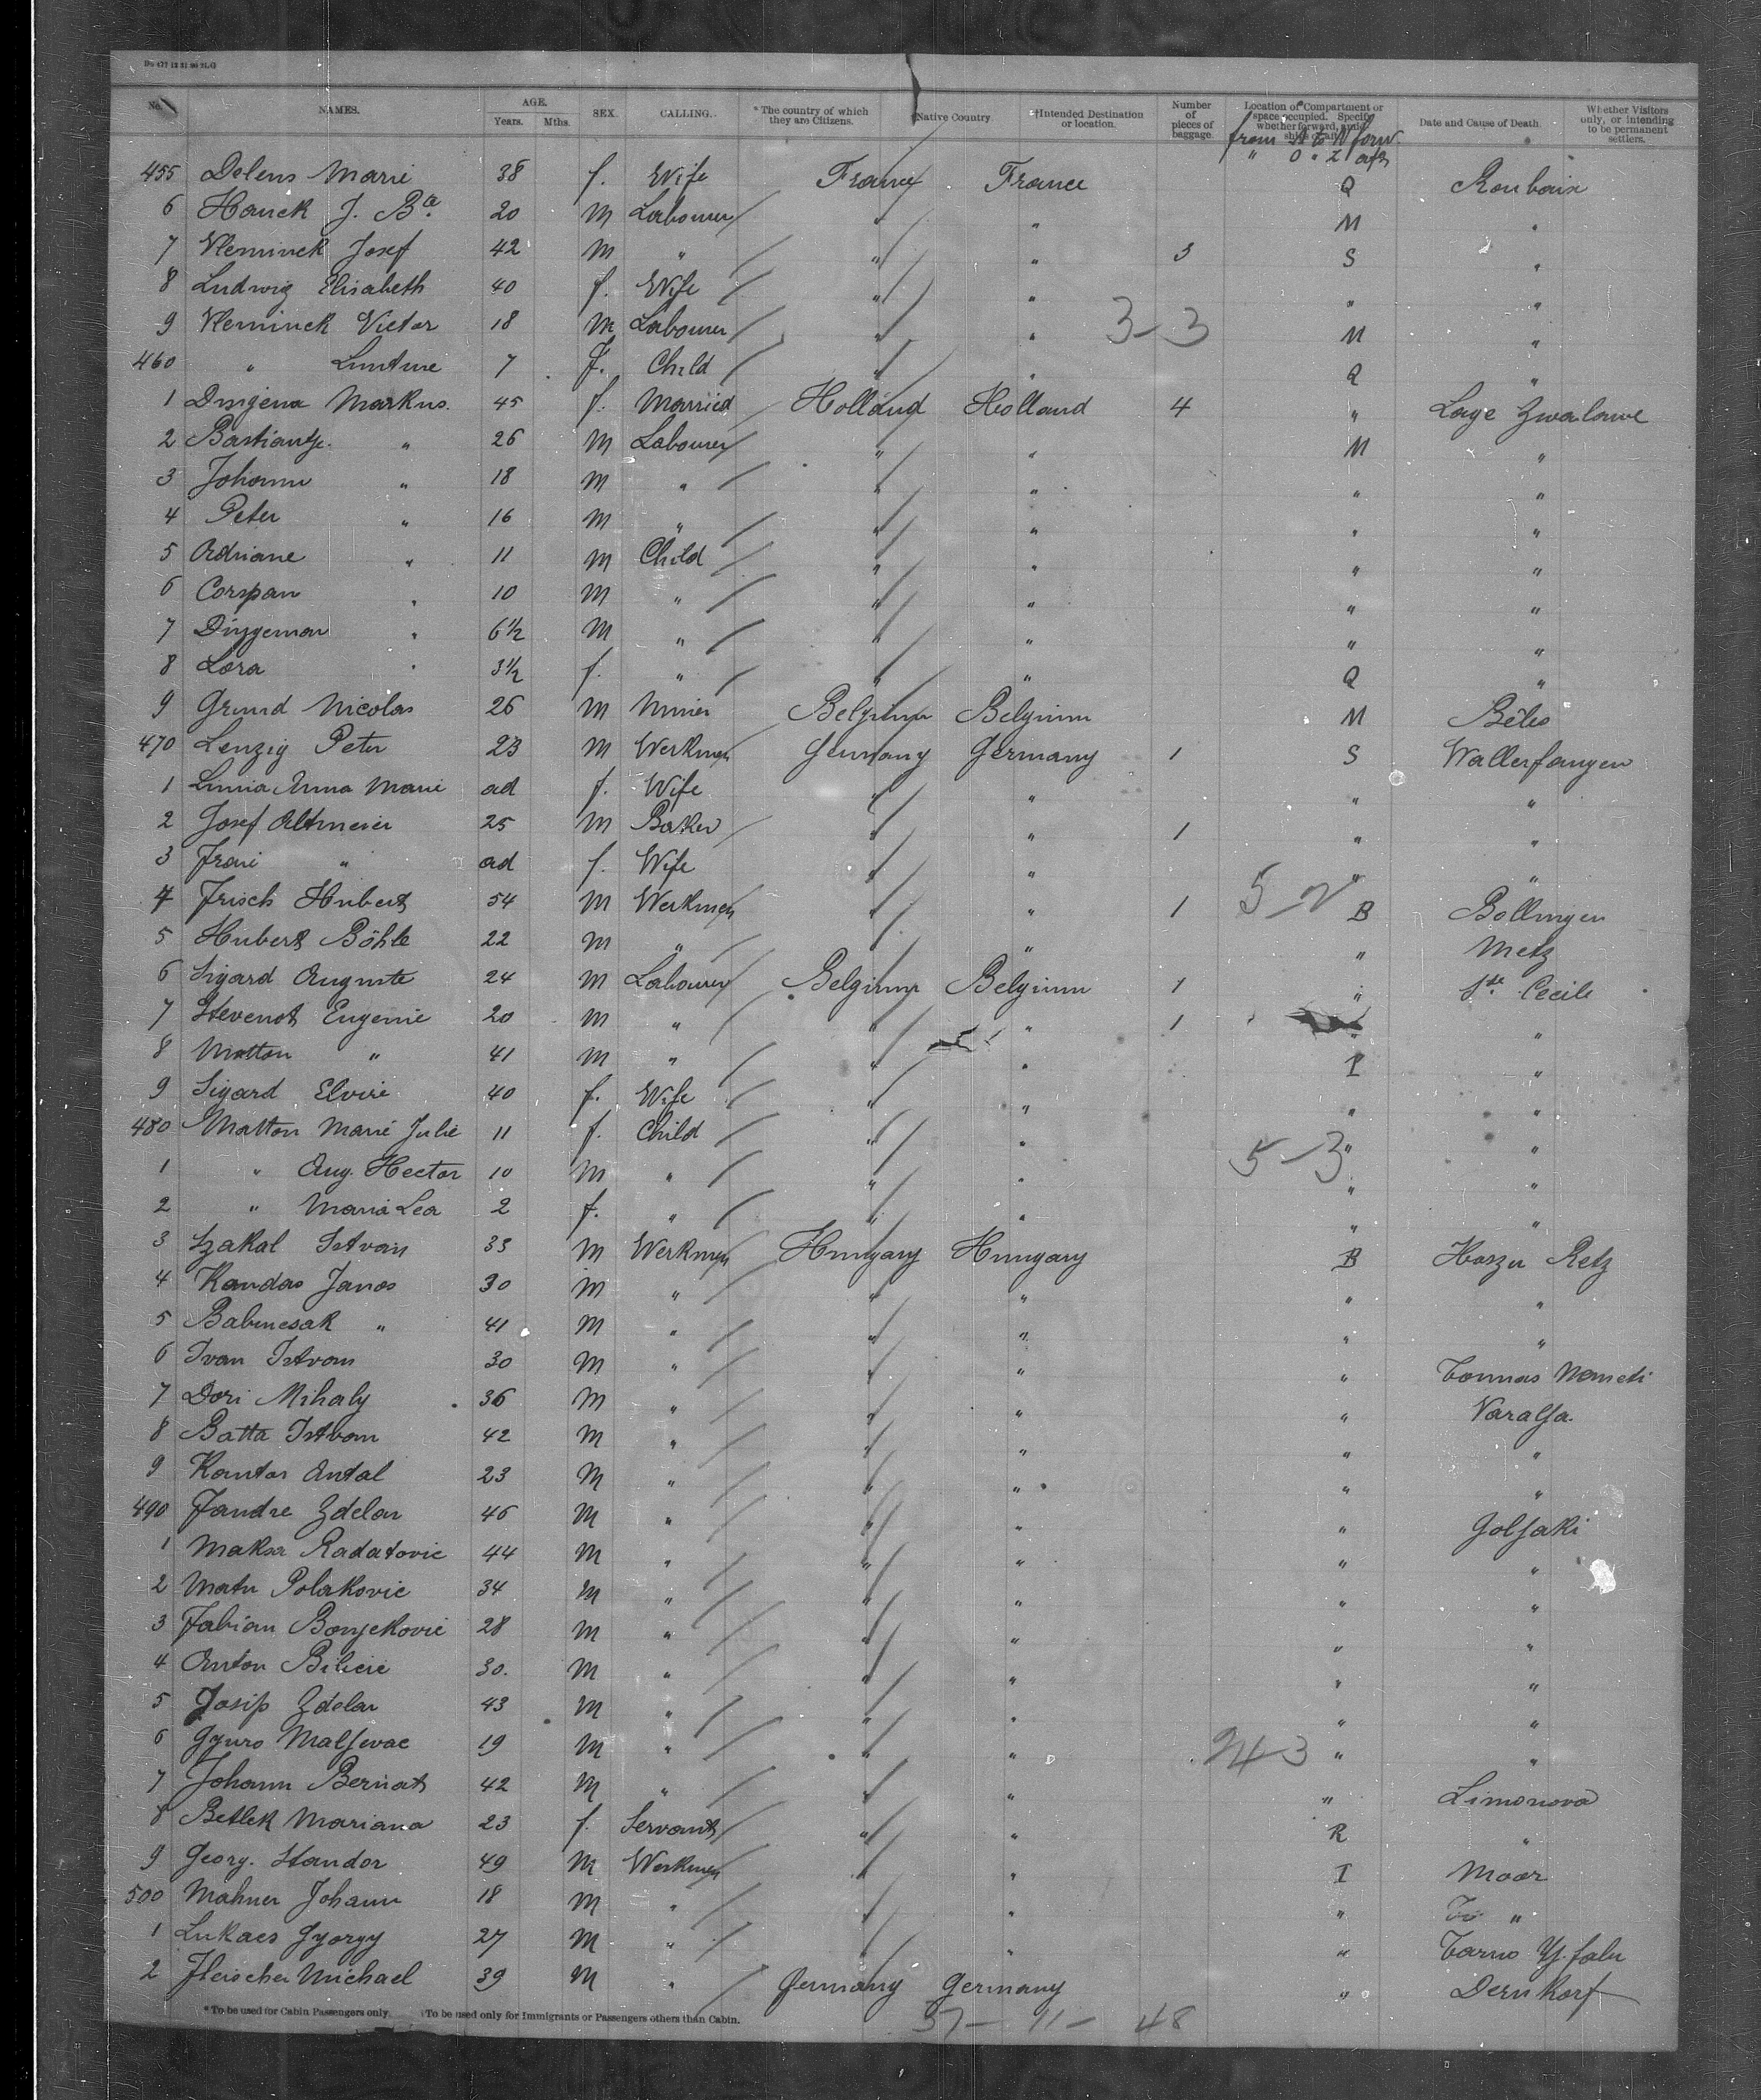 No. NAMES. AGE. Years. Mths. SEX. CALLING. *The country of which they are Citizens. †Native Country †Intended Destination or location. Number of pieces of baggage. Location of Compartment or space occupied. Specify whether forward, Date and Cause of Death. Whether Visitors only, or intending to be permanent settlers.
from A to N forw.
" O " Z aft
455 Delens Marie 38 f. Wife France France Q Roubaix
6 Hanck J. Ba. 20 M Labourer " " M "
7 Vleminck Josef 42 M " " " 3 S "
8 Ludwig Elisabeth 40 f. Wife " " " "
9 Vleminck Victor 18 M Labourer " " M "
3-3
460 " 7 f. Child " " Q "
1 Dingena Markus. 45 f. Married Holland Holland 4 " Lage Zwaluwe
2 Bastiantje. " 26 M Labourer " " M "
3 Johann " 18 M " " " " "
4 Peter " 16 M " " " " "
5 Adriane " 11 M Child " " " "
6 Corspan " 10 M " " " " "
7 Dingeman " 6½ M " " " " "
8 Lora " 3½ f. " " " Q "
9 Grund Nicolas 26 M Miner Belgium Belgium M Bêles
470 Lenzig Peter 23 M Werkmen Germany Germany 1 S Wallerfangen
1 Anna Marie ad f. Wife " " " "
2 Josef Altmeier 25 M Baker " " 1 " "
3 Frau " ad f. Wife " " " "
4 Frisch Hubert 54 M Werkmen " " 1 B Bollingen
5 Hubert Böhle 22 M " " " " Metz
6 Sigard Auguste 24 M Labourer Belgium Belgium 1 " Ste Cecile
7 Stevenot Eugenie 20 M " " " 1 " "
8 Matton " 41 M " " " I "
9 Sigard Elvire 40 f. Wife " " " "
480 Matton Marie Julie 11 f. Child " " " "
5-3
1 " Aug. Hector 10 M " " " " "
2 " Maria Lea 2 f. " " " " "
3 Szakal Istvan 33 M Werkmen Hungary Hungary B Haszu Retz
4 Kandas Janos 30 M " " " " "
5 Babincsak " 41 M " " " " "
6 Ivan Istvan 30 M " " " " Tornas Nemeti
7 Dori Mihaly 36 M " " " " Varalja.
8 Batta Istvan 42 M " " " " "
9 Kantor Antal 23 M " " " " "
490 Jandre Zdelar 46 M " " " " Goljaki
1 Maksa Radatovic 44 M " " " " "
2 Matu Polakovic 34 M " " " " "
3 Fabian Bonjekovic 28 M " " " " "
4 Anton Bilicic 30. M " " " " "
5 Josip Zdelar 43 M " " " " "
6 Gyuro Maljevac 19 M " " " " "
7 Johann Bernat 42 M " " " " Limonova
8 Betlek Mariana 23 f. Servant " " R "
9 Georg. Standor 49 M Werkmen " " I Moor
500 Mahner Johann 18 M " " " " "
1 Lukacs Gyorgy 27 M " " " " Tarno Uj. falu
2 Fleischer Michael 39 M " Germany Germany " Dernkorf
*To be used for Cabin Passengers only. †To be used only for Immigrants or Passengers others than Cabin.
37- 11- 48